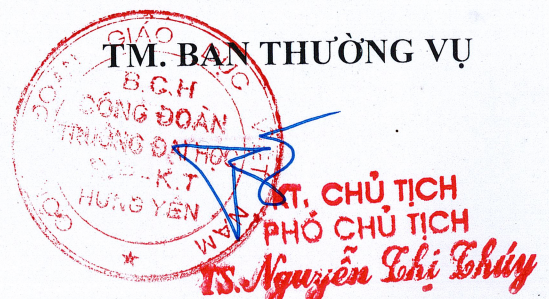 TM. BAN THƯỜNG VỤ
CÔNG ĐOÀN GIÁO DỤC VIỆT NAM
B.C.H
CÔNG ĐOÀN
TRƯỜNG ĐẠI HỌC
K.T
HƯNG YÊN
KT. CHỦ TỊCH
PHÓ CHỦ TỊCH
TS. Nguyễn Thị Thúy